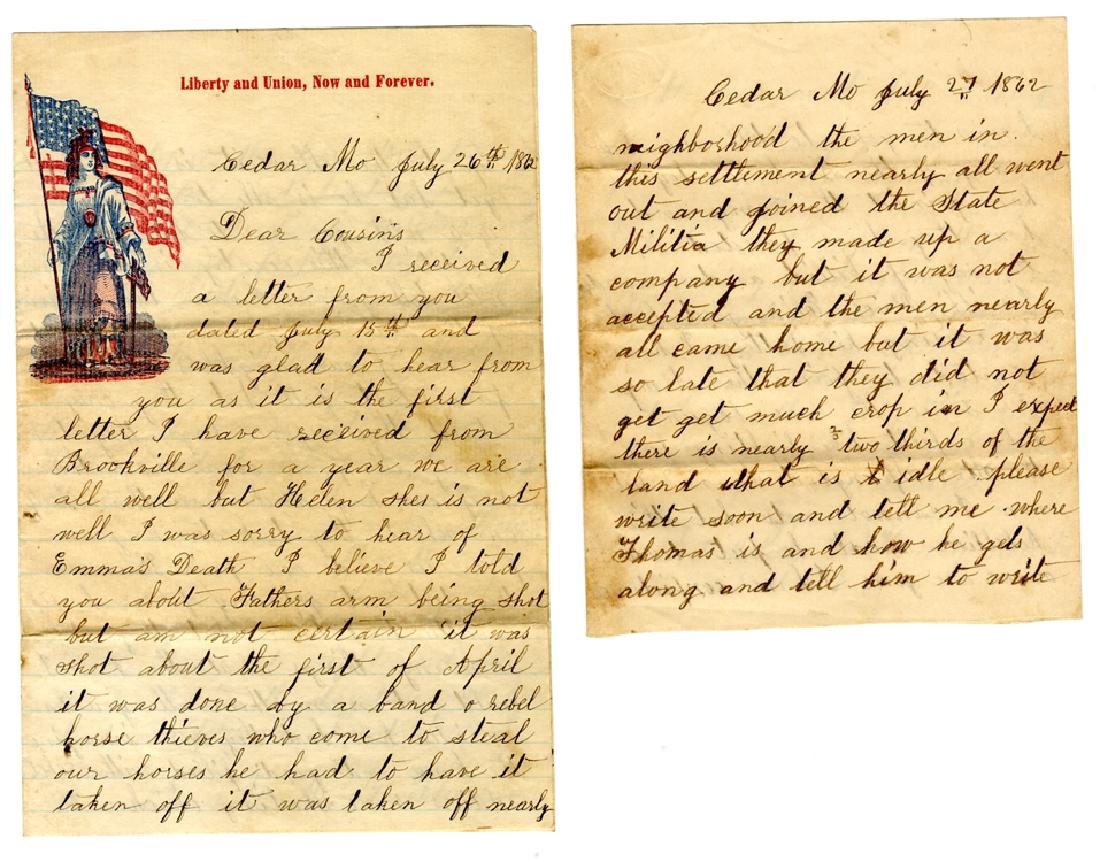 Liberty and Union, Now and Forever.
Cedar Mo July 26th 1862
Dear Cousins
I received
a letter from you
dated July 15th and
was glad to hear from
you as it is the first
letter I have received from
Brookville for a year we are
all well but Helen shes is not
well I was sorry to hear of
Emma's Death I believe I told
you about Fathers arm being shot
but am not certain it was
shot about the first of April
it was done by a band o rebel
horse thieves who come to steal
our horses he had to have it
taken off it was taken off nearly
Cedar Mo July 27 1862
neighborhood the men in
this settlement nearly all went
out and joined the State
Militia they made up a
company but it was not
accepted and the men nearly
all came home but it was
so late that they did not
get get much crop in I expect
there is nearly two thirds of the
land that is idle please
write soon and tell me where
Thomas is and how he gets
along and tell him to write